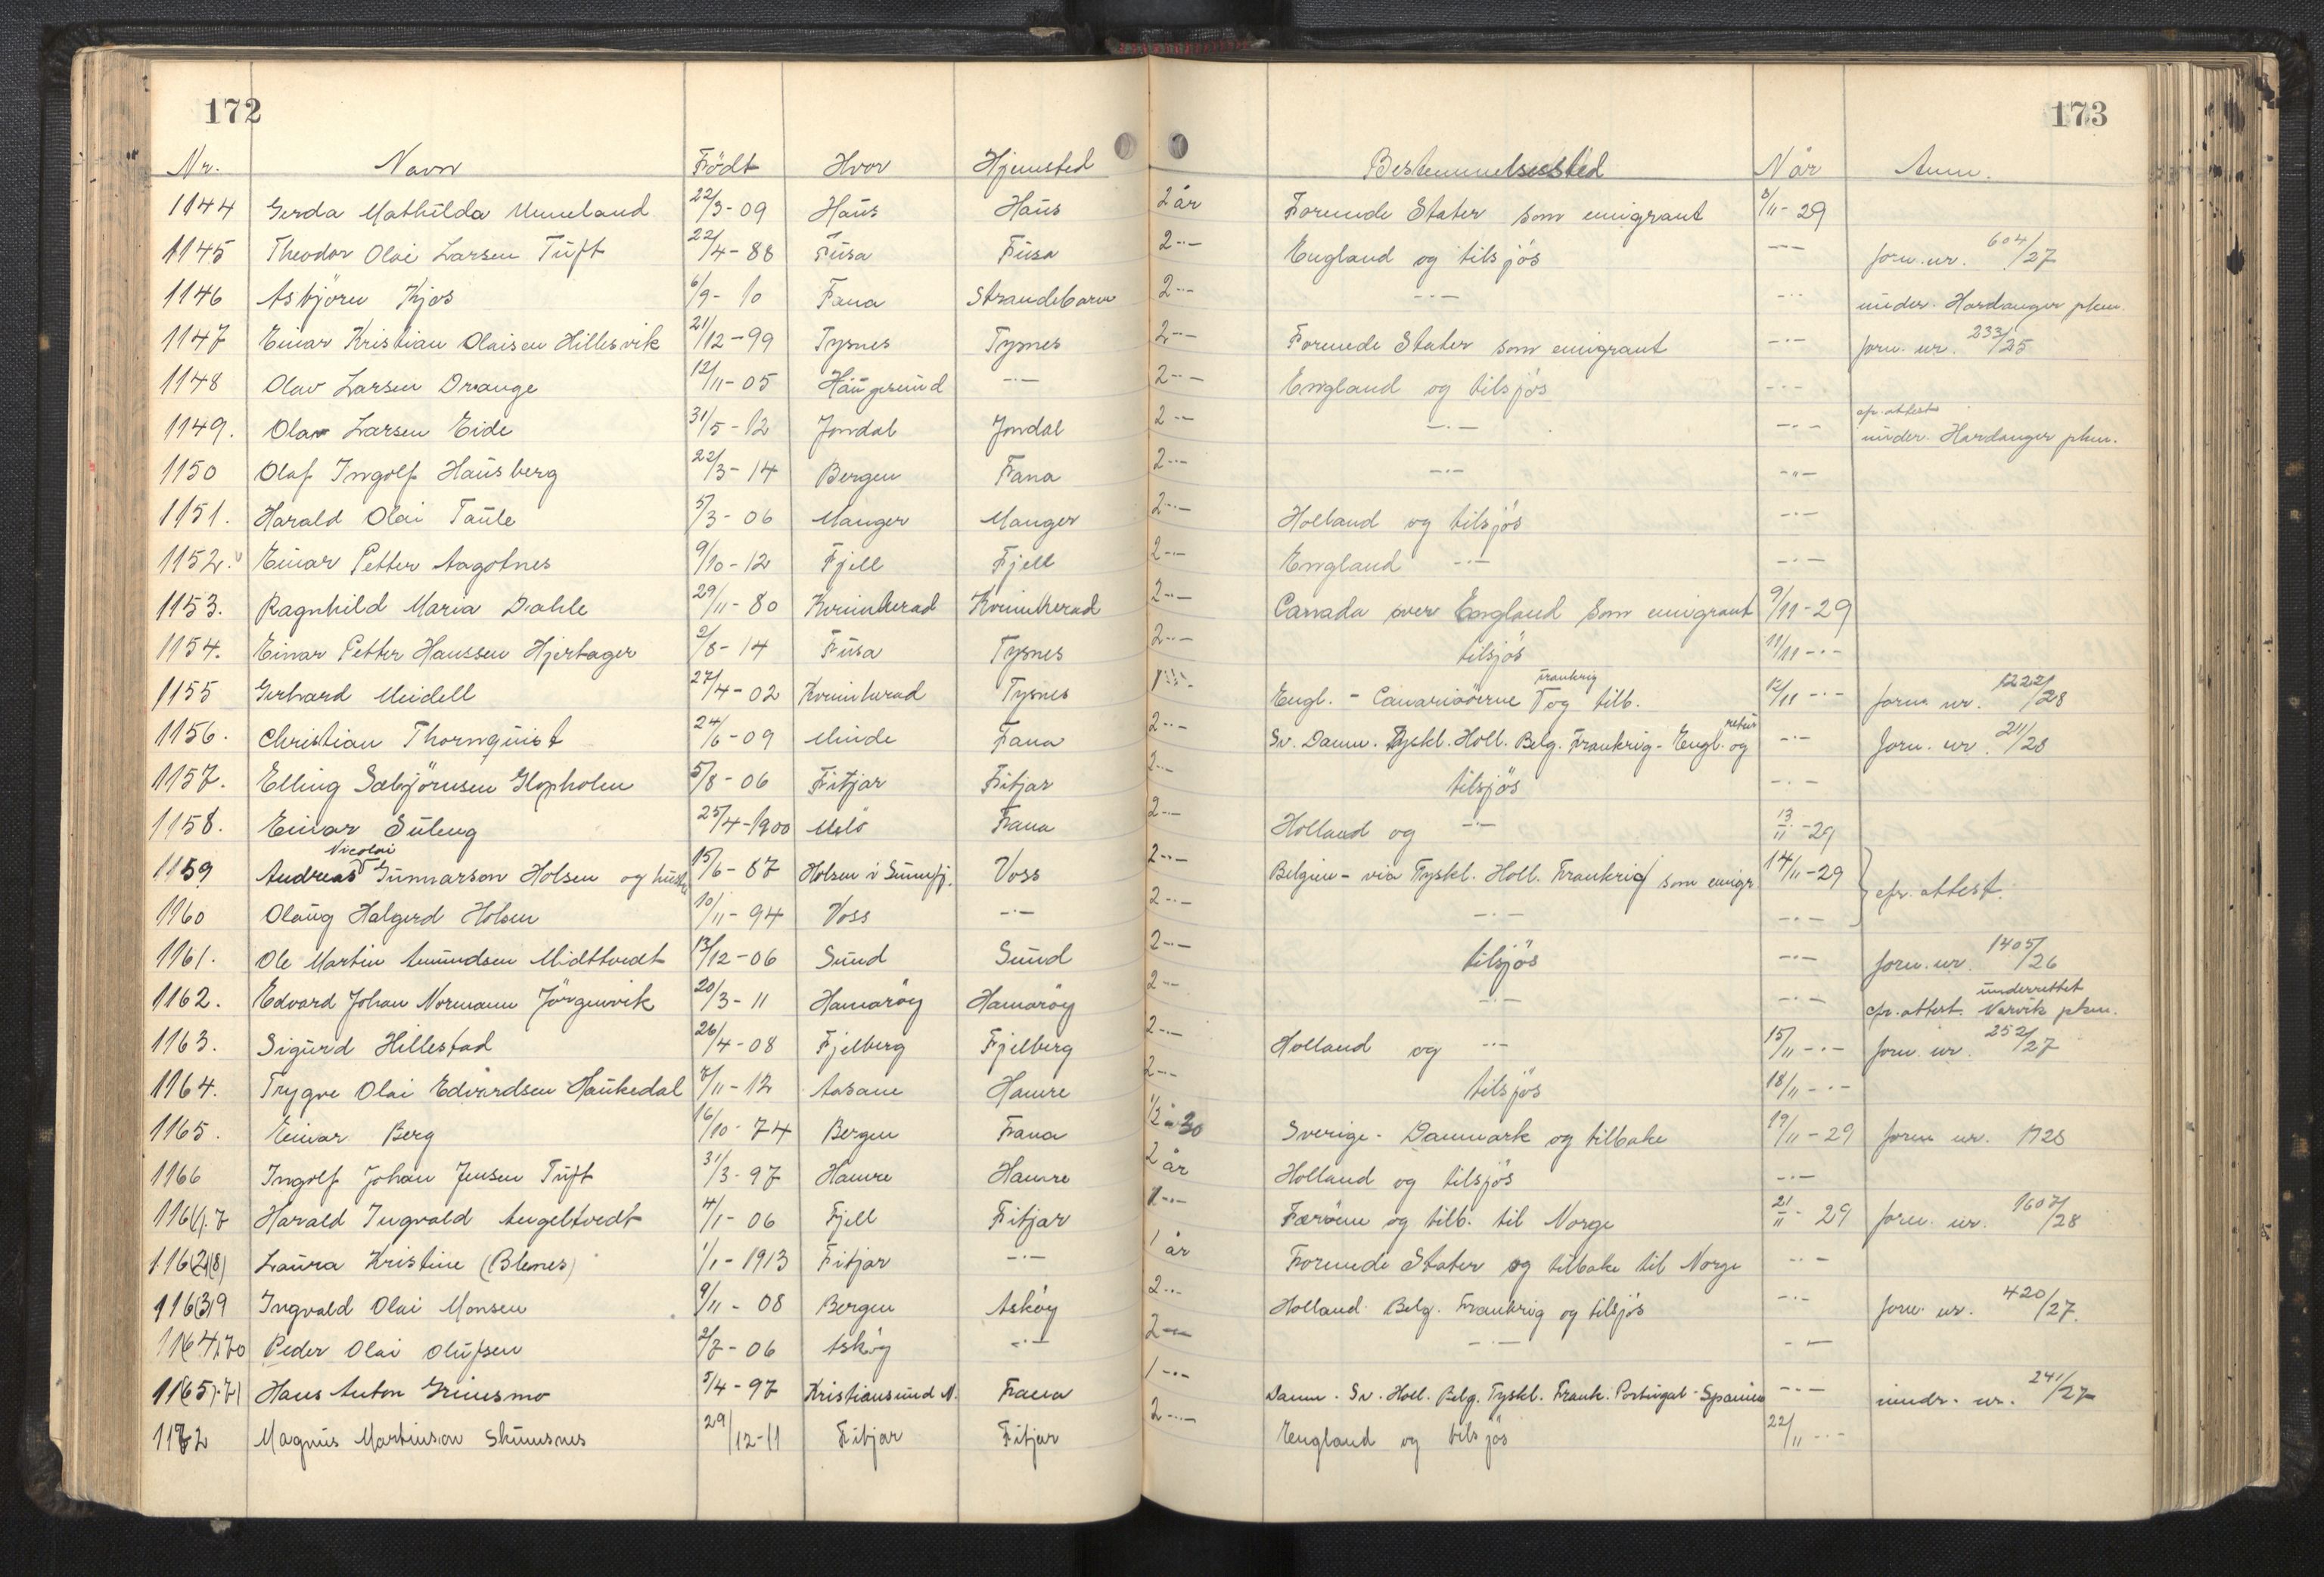 172
173
Nr. Navn Födt Hvor Hjemsted Bestemmelsessted Når Anm.
1144 Gerda Mathilda Unneland 22/3-09 Haus Haus 2 år Forenede Stater som emigrant 8/11-29
1145 Theodor Olai Larsen Tuft 22/4-88 Fusa Fusa 2-"- England og tilsjös -"- forn. nr. 604/27
1146 Asbjörn Kjos 6/9-10 Fana Strandebarm 2-"- -"- -"- under. Hardanger pkm.
1147 Einar Kristian Olaisen Hillesvik 21/12-99 Tysnes Tysnes 2-"- Forenede Stater som emigrant -"- forn. nr. 233/25
1148 Olav Larsen Drange 12/11-05 Haugesund -"- 2-"- England og tilsjös -"-
1149. Olav Larsen Eide 31/5-12 Jondal Jondal 2-"- -"- -"- efr. attest under. Hardanger pkm.
1150 Olaf Ingolf Hausberg 22/3-14 Bergen Fana 2-"- -"- -"-
1151. Harald Olai Taule 5/3-06 Manger Manger 2-"- Holland og tilsjös -"-
1152. Einar Petter Aagotnes 9/10-12 Fjell Fjell 2-"- England -"- -"-
1153. Ragnhild Maria Dahle 29/11-80 Kvinnherad Kvinnherad 2-"- Canada over England som emigrant 9/11-29
1154. Einar Petter Hanssen Hjertager 2/8-14 Fusa Tysnes 2-"- tilsjös 11/11-"-
1155 Gerhard Meidell 27/4-02 Kvinnherad Tysnes 1-"- Engl. - Canariöerne Frankrig og tilb. 12/11-"- forn. nr. 1222/28
1156. Christian Thornquist 24/6-09 Minde Fana 2-"- Sv. Danm. Tyskl. Holl. Belg. Frankrig - Engl. og retur -"- forn. nr. 211/28
1157. Elling Sæbjörnsen Glopholm 5/8-06 Fitjar Fitjar 2-"- tilsjös -"-
1158. Einar Suleng 25/4-1900 Oslo Fana 2-"- Holland og -"- 13/11-29
1159 Andreas Nicolai Gunnarson Holsen og hustru 15/6-87 Holsen i Sunnfj. Voss 2-"- Belgien - via Tyskl. Holl. Frankrig som emigr 14/11-29 efr. attest.
1160 Olaug Halgerd Holsen 10/11-94 Voss -"- 2-"- -"- -"-
1161. Ole Martin Amundsen Midttvedt 13/12-06 Sund Sund 2-"- tilsjös -"- forn. nr. 1405/26
1162. Edvard Johan Normann Jörgenvik 20/3-11 Hamaröy Hamaröy 2-"- -"- -"- efr. attest. underrettet Narvik pkm.
1163. Sigurd Hillestad 26/4-08 Fjelberg Fjelberg 2-"- Holland og -"- 15/11-"- forn. nr. 252/27
1164. Trygve Olai Edvardsen Haukedal 7/11-12 Aasane Hamre 2-"- tilsjös 18/11-"-
1165. Einar Berg 16/10-74 Bergen Fana Sverige - Danmark og tilbake 19/11-29 forn. nr.
1166 Ingolf Johan Jensen Tuft 31/3-97 Hamre Hamre 2 år Holland og tilsjös -"-
116(1).7 Harald Ingvald Angeltvedt 4/1-06 Fjell Fitjar 1-"- Færöene og tilb. til Norge 21/11-29 forn. nr. 1607/28
116(2)(8) Laura Kristine (Blenes) 1/1-1913 Fitjar -"- 1 år Forenede Stater og tilbake til Norge -"-
116(3)9 Ingvald Olai Monsen 9/11-08 Bergen Asköy 2-"- Holland Belg. Frankrig og tilsjös -"- forn. nr. 420/27.
11(64)70 Peder Olai Olufsen 2/7-06 Asköy -"- 2-"- -"- -"-
11(65).71 Hans Anton Grinsmo 5/4-97 Kristiansund N. Fana 1-"- Danm. Sv. Holl. Belg. Tyskl. Frank. Portugal - Spanien -"- undr. nr. 241/27
1172 Magnus Martinson Skumsnes 29/12-11 Fitjar Fitjar 2-"- England og tilsjös 22/11-"-